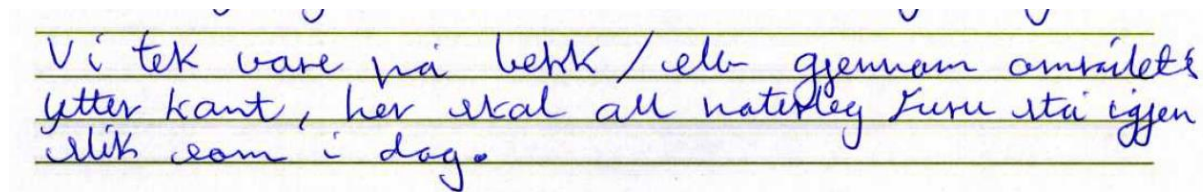 Vi tek vare på bekk / elv gjennom områdets
ytter kant, her skal all naturleg furu stå igjen
slik som i dag.